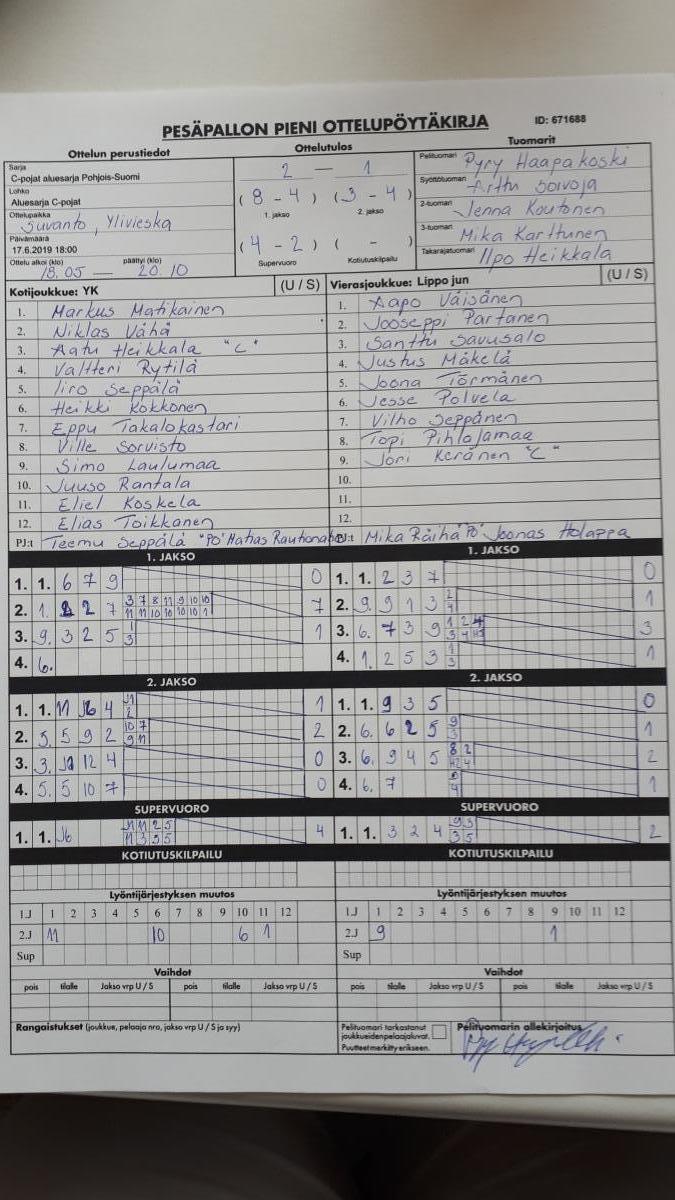 PESÄPALLON PIENI OTTELUPÖYTÄKIRJA ID: 671688
Ottelun perustiedot Ottelutulos Tuomarit
Sarja
C-pojat aluesarja Pohjois-Suomi
Lohko
Aluesarja C-pojat
Ottelupaikka
Suvanto, Ylivieska
Päivämäärä
17.6.2019 18:00
Ottelu alkoi (klo) päättyi (klo)
18.05 — 20.10
2 — 1
(8 - 4) (3 - 4)
1. jakso 2. jakso
(4 - 2) ( - )
Supervuoro Kotiutuskilpailu
Pelituomari Pyry Haapakoski
Syöttötuomari Arttu Soivoja
2-tuomari Jenna Koutonen
3-tuomari Mika Karttunen
Takarajatuomari Ilpo Heikkala
Kotijoukkue: YK (U / S)
1. Markus Matikainen
2. Niklas Vähä
3. Aatu Heikkala "C"
4. Valtteri Rytilä
5. Iiro Seppälä
6. Heikki Kokkonen
7. Eppu Takalokastari
8. Ville Sorvisto
9. Simo Laulumaa
10. Juuso Rantala
11. Eliel Koskela
12. Elias Toikkanen
PJ:t Teemu Seppälä "PO"
Vierasjoukkue: Lippo jun (U / S)
1. Aapo Väisänen
2. Jooseppi Partanen
3. Santtu Savusalo
4. Justus Mäkelä
5. Joona Törmänen
6. Jesse Polvela
7. Vilho Seppänen
8. Topi Pihlajamaa
9. Jori Keränen "C"
10.
11.
12.
PJ:t Mika Räihä "PO" Joonas Holappa
1. JAKSO
1. 1. 6 7 9 0
2. 1. 2 7 7
3. 9. 3 2 5 1 3 1
4. 6.
2. JAKSO
1. 1. 11 4 1
2. 5. 5 9 2 10 7 9 11 2
3. 3. 12 4 0
4. 5. 5 10 7 0
SUPERVUORO
1. 1. 4
KOTIUTUSKILPAILU
Lyöntijärjestyksen muutos
1.J 1 2 3 4 5 6 7 8 9 10 11 12
2.J 11 10 6 1
Sup
Vaihdot
pois tilalle Jakso vrp U / S pois tilalle Jakso vrp U / S
Rangaistukset (joukkue, pelaaja nro, jakso vrp U / S ja syy)
1. JAKSO
1. 1. 2 3 7 0
2. 9. 9 1 3 2 4 1
3. 6. 7 3 9 3
4. 1. 2 5 3 1 3 1
2. JAKSO
1. 1. 9 3 5 0
2. 6. 6 2 5 9 3 1
3. 6. 9 4 5 2
4. 6. 7 1
SUPERVUORO
1. 1. 3 2 4 9 3 3 5 2
KOTIUTUSKILPAILU
Lyöntijärjestyksen muutos
1.J 1 2 3 4 5 6 7 8 9 10 11 12
2.J 9 1
Sup
Vaihdot
pois tilalle Jakso vrp U / S pois tilalle Jakso vrp U / S
Pelituomari tarkastanut
joukkueiden pelaajaluvat.
Puutteet merkitty erikseen.
Pelituomarin allekirjoitus